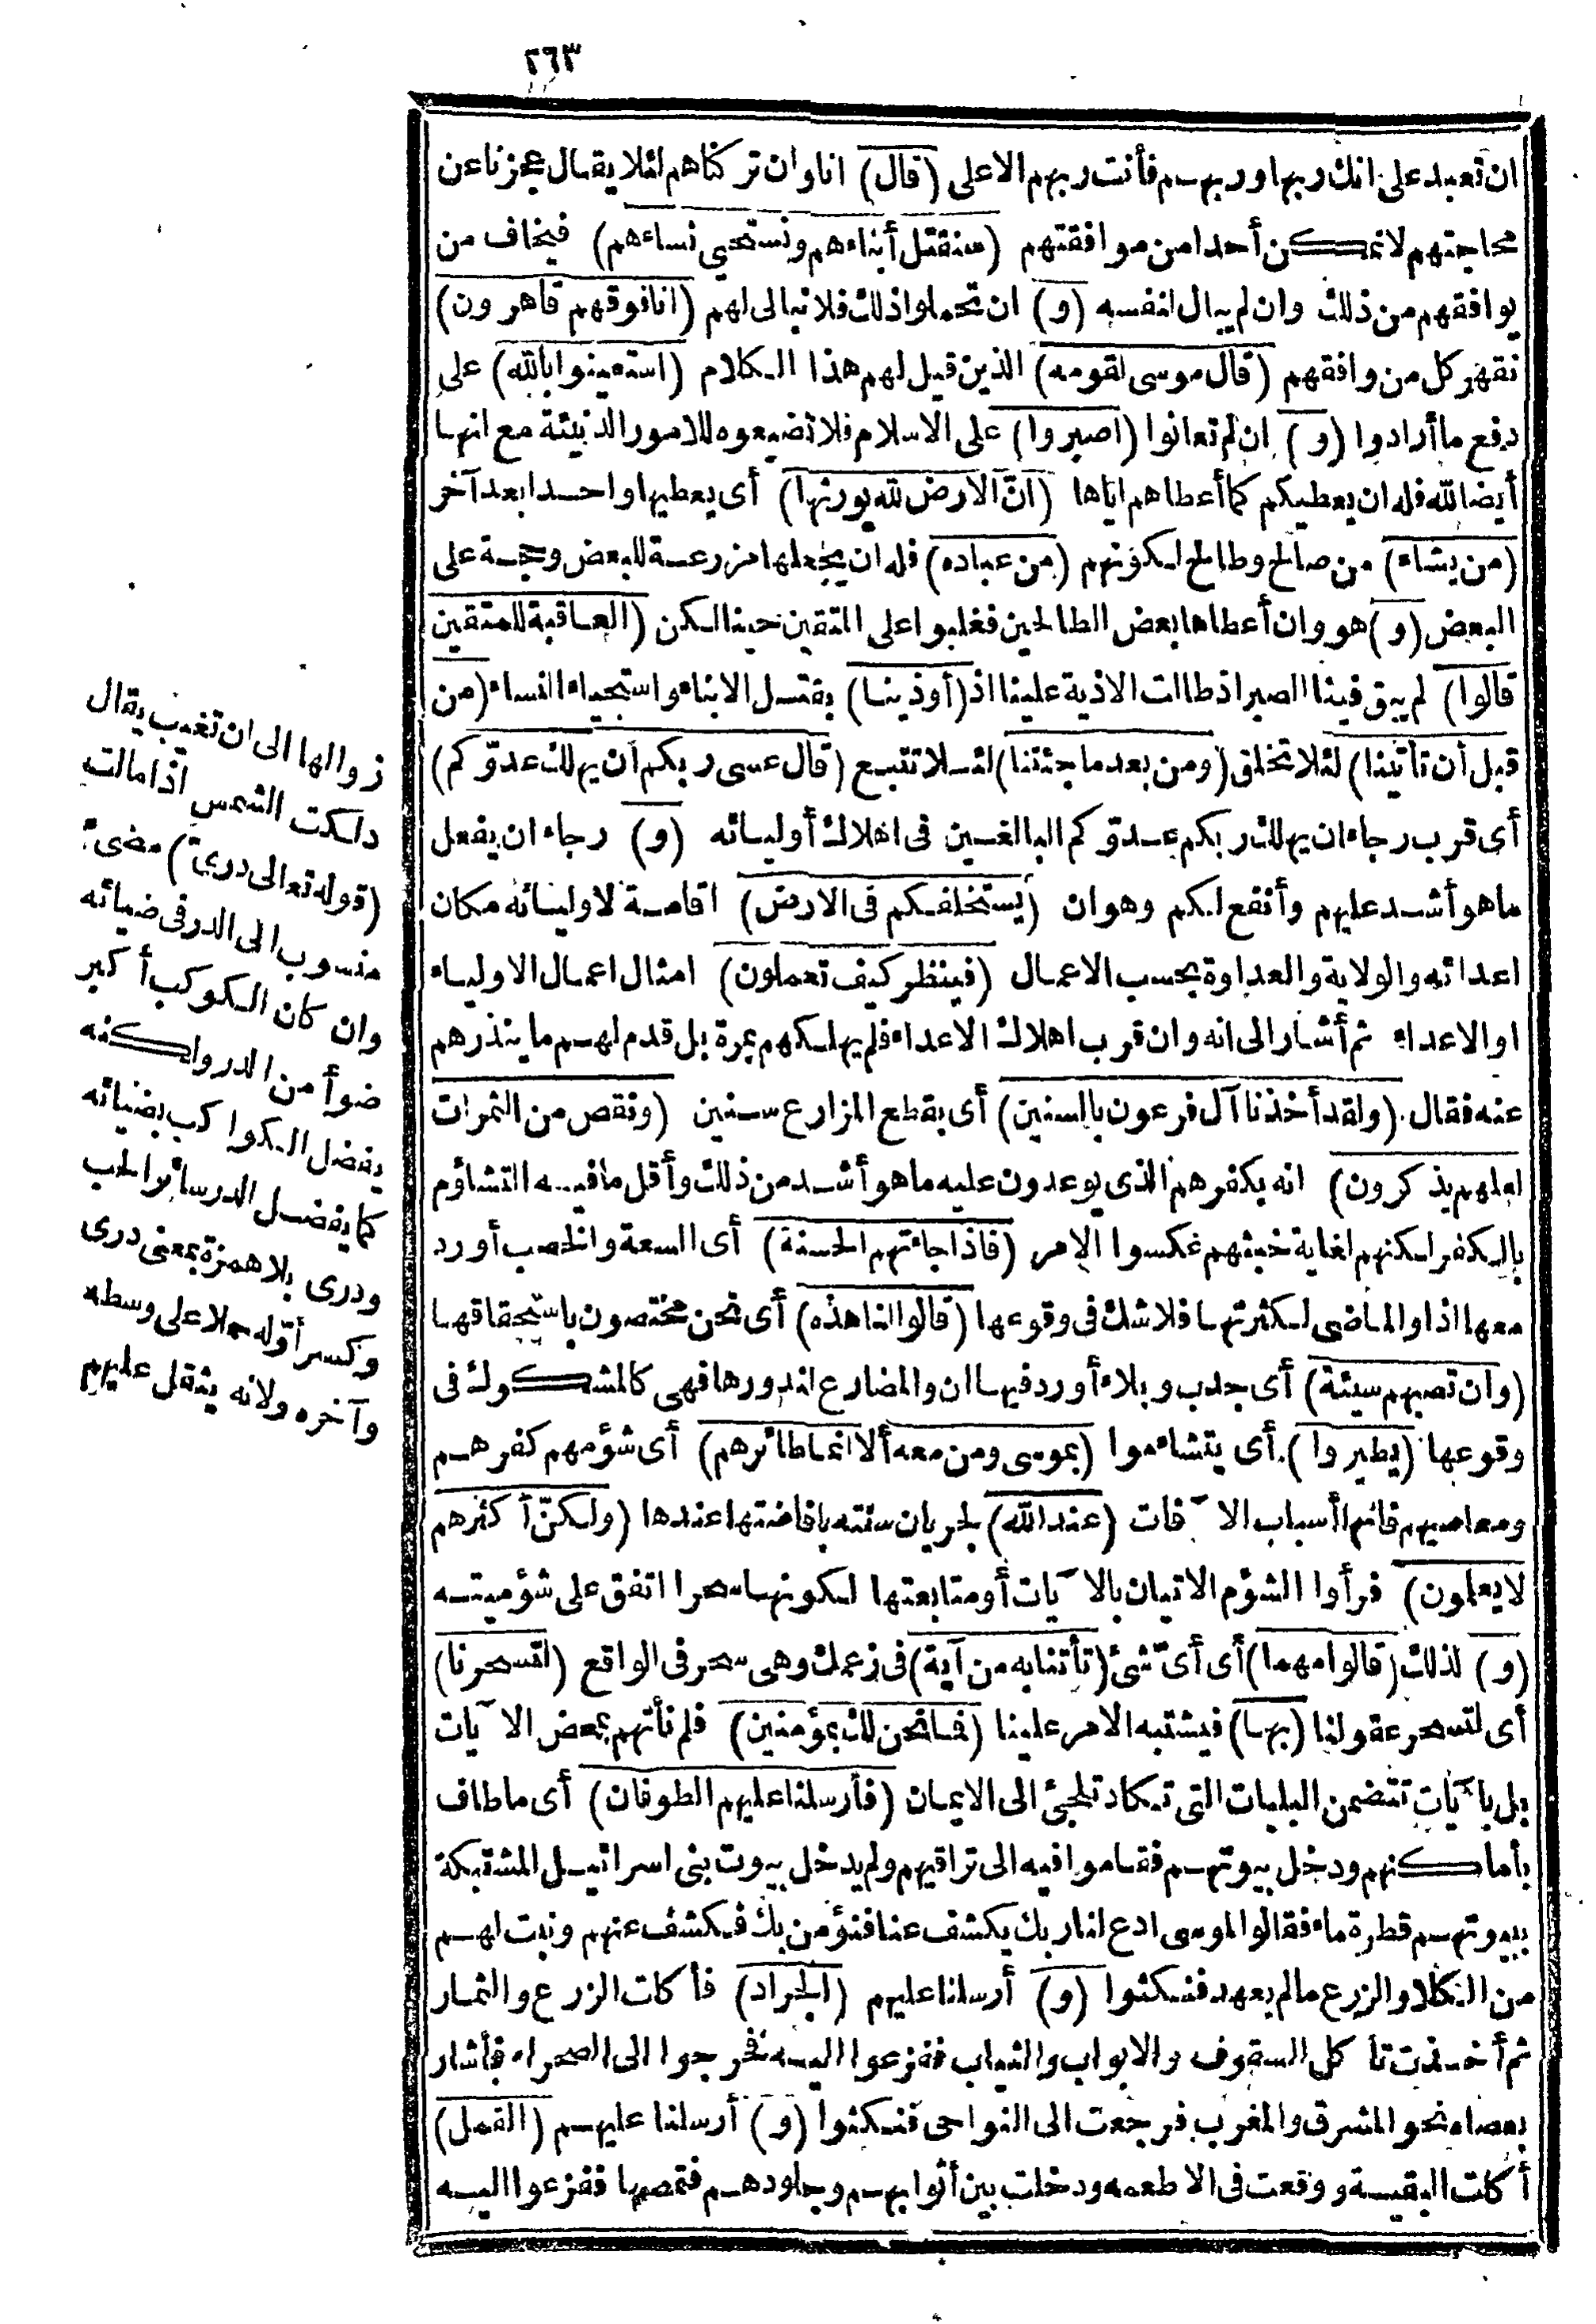 ٢٦٣
ان تعبد على انك ربها وربهم فأنت ربهم الاعلى (قال) اناوان تركناهم لئلا يقال عجزنا عن
محاجتهم لانمكن أحدا من موافقتهم (سنقتل أبناءهم ونستحيي نساءهم) فيخاف من
يوافقهم من ذلك وان لم يبال لنفسه (و) ان تحملوا ذلك فلانبالى لهم (انا فوقهم قاهرون)
نقهر كل من وافقهم (قال موسى لقومه) الذين قيل لهم هذا الكلام (استعينوا بالله) على
دفع ما أرادوا (و) ان لم تعانوا (اصبروا) على الاسلام فلاتضيعوه للامور الدنيئة مع انها
أيضا لله فله ان يعطيكم كما أعطاهم اياها (انّ الارض لله يورثها) أى يعطيها واحدا بعد آخر
(من يشاء) من صالح وطالح لكونهم (من عباده) فله ان يجعلها مزرعة للبعض وحجة على
البعض (و) هو وان أعطاها بعض الطالحين فغلبوا على المتقين حينا لكن (العاقبة للمتقين
قالوا) لم يبق فينا الصبر اذ طالت الاذية علينا اذ (أوذينا) بقتل الابناء واستحياء النساء (من
قبل أن تأتينا) لئلا تخلق (ومن بعد ما جئتنا) لئلا تتبع (قال عسى ربكم أن يهلك عدوّكم)
أى قرب رجاء ان يهلك ربكم عدوّكم البالغين فى اهلاك أوليائه (و) رجاء ان يفعل
ما هو أشد عليهم وأنفع لكم وهو ان (يستخلفكم فى الارض) اقامة لاوليائه مكان
اعدائه والولاية والعداوة بحسب الاعمال (فينظر كيف تعملون) امثال اعمال الاولياء
او الاعداء ثم أشار الى انه وان قرب اهلاك الاعداء فلم يهلكهم بمرة بل قدم لهم ما ينذرهم
عنه فقال (ولقد أخذنا آل فرعون بالسنين) أى بقطع المزارع سنين (ونقص من الثمرات
لعلهم يذكرون) انه بكفرهم الذى يوعدون عليه ما هو أشد من ذلك وأقل ما فيه التشاؤم
بالكفر لكنهم لغاية خبثهم عكسوا الامر (فاذا جاءتهم الحسنة) أى السعة والخصب أورد
معها اذا والماضى لكثرتها فلاشك فى وقوعها (قالوا لنا هذه) أى نحن مختصون باستحقاقها
(وان تصبهم سيئة) أى جدب وبلاء أورد فيها ان والمضارع لندورها فهى كالمشكوك فى
وقوعها (يطيروا) أى يتشاءموا (بموسى ومن معه ألا انما طائرهم) أى شؤمهم كفرهم
ومعاصيهم فانها أسباب الآفات (عند الله) لجريان سنته بافاضتها عندها (ولكنّ أكثرهم
لا يعلمون) فرأوا الشؤم الاتيان بالآيات أو متابعتها لكونها سحرا اتفق على شؤميته
(و) لذلك (قالوا مهما) أى أىّ شئ (تأتنا به من آية) فى زعمك وهى سحر فى الواقع (لتسحرنا)
أى لتسحر عقولنا (بها) فيشتبه الامر علينا (فما نحن لك بمؤمنين) فلم نأتهم ببعض الآيات
بل بآيات تتضمن البليات التى تكاد تلجئ الى الايمان (فأرسلنا عليهم الطوفان) أى ماطاف
بأماكنهم ودخل بيوتهم فقاموا فيه الى تراقيهم ولم يدخل بيوت بنى اسرائيل المشتبكة
ببيوتهم قطرة ماء فقالوا لموسى ادع لنا ربك يكشف عنا فنؤمن بك فكشف عنهم ونبت لهم
من الكلا والزرع مالم يعهد فنكثوا (و) أرسلنا عليهم (الجراد) فأكلت الزرع والثمار
ثم أخذت تأكل السقوف والابواب والثياب ففزعوا اليه نفرجوا الى الصحراء فأشار
بعصاه نحو المشرق والمغرب فرجعت الى النواحى فنكثوا (و) أرسلنا عليهم (القمل)
أكلت البقية ووقعت فى الاطعمة ودخلت بين أثوابهم وجلودهم فتمصها ففزعوا اليه
زوالها الى ان تغيب يقال
دلكت الشمس اذا مالت
(قوله تعالى درىّ) مضىء
منسوب الى الدر فى ضيائه
وان كان الكوكب أكبر
ضوأ من الدر ولكنه
يفضل الكواكب بضيائه
كما يفضل الدر سائر الحب
ودرى بلا همزة بمعنى درى
وكسر أوّله حملا على وسطه
وآخره ولانه يثقل عليهم